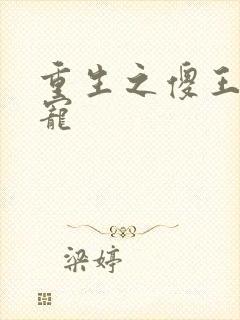 重生之傻王
寵
梁婷